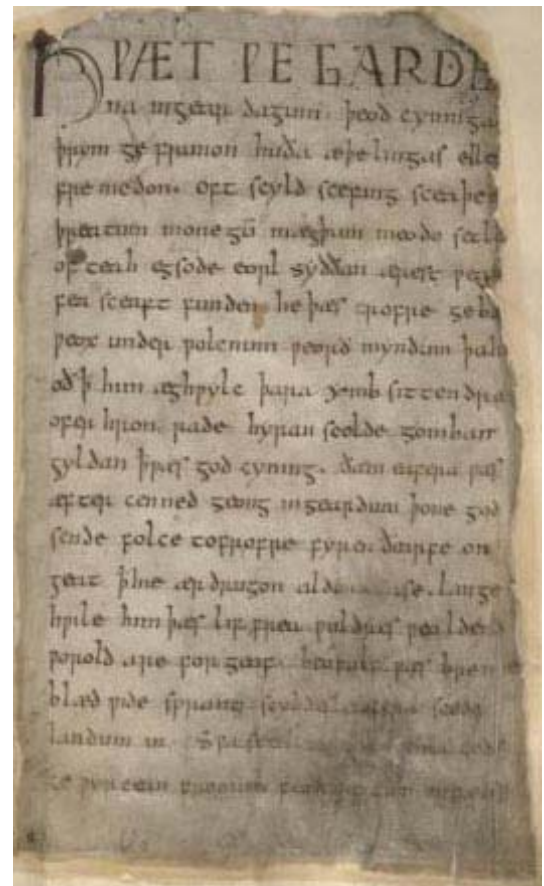 HǷÆT ǷE GARDE
na ingear dagum. þeod cyninga
þrym ge frunon huða æþelingas elle
fremedon. oft scyld scefing sceaþe
þreatum monegū mægþum meodo setla
of teah egsode eorl syððan ærest ƿear
fea sceaft funden he þæs frofre geba
ƿeox under ƿolcnum ƿeorð myndum þah
oð þ̄ him æghƿylc þara ymb sittendra
ofer hron rade hyran scolde gomban
gyldan þ̄ ƿæs god cyning. ðæm eafera ƿæs
æfter cenned geong ingeardum þone god
sende folce tofrofre fyren ðearfe on
geat þ̄ hie ær drugon aldor ase. lange
hƿile him þæs lif frea ƿuldres ƿealdend
ƿorold are for geaf. beoƿulf ƿæs breme
blæd ƿide sprang scyldes eafera scede
landum in. Sƿa sceal guma gode
ge ƿyrcean fromum feoh giftum